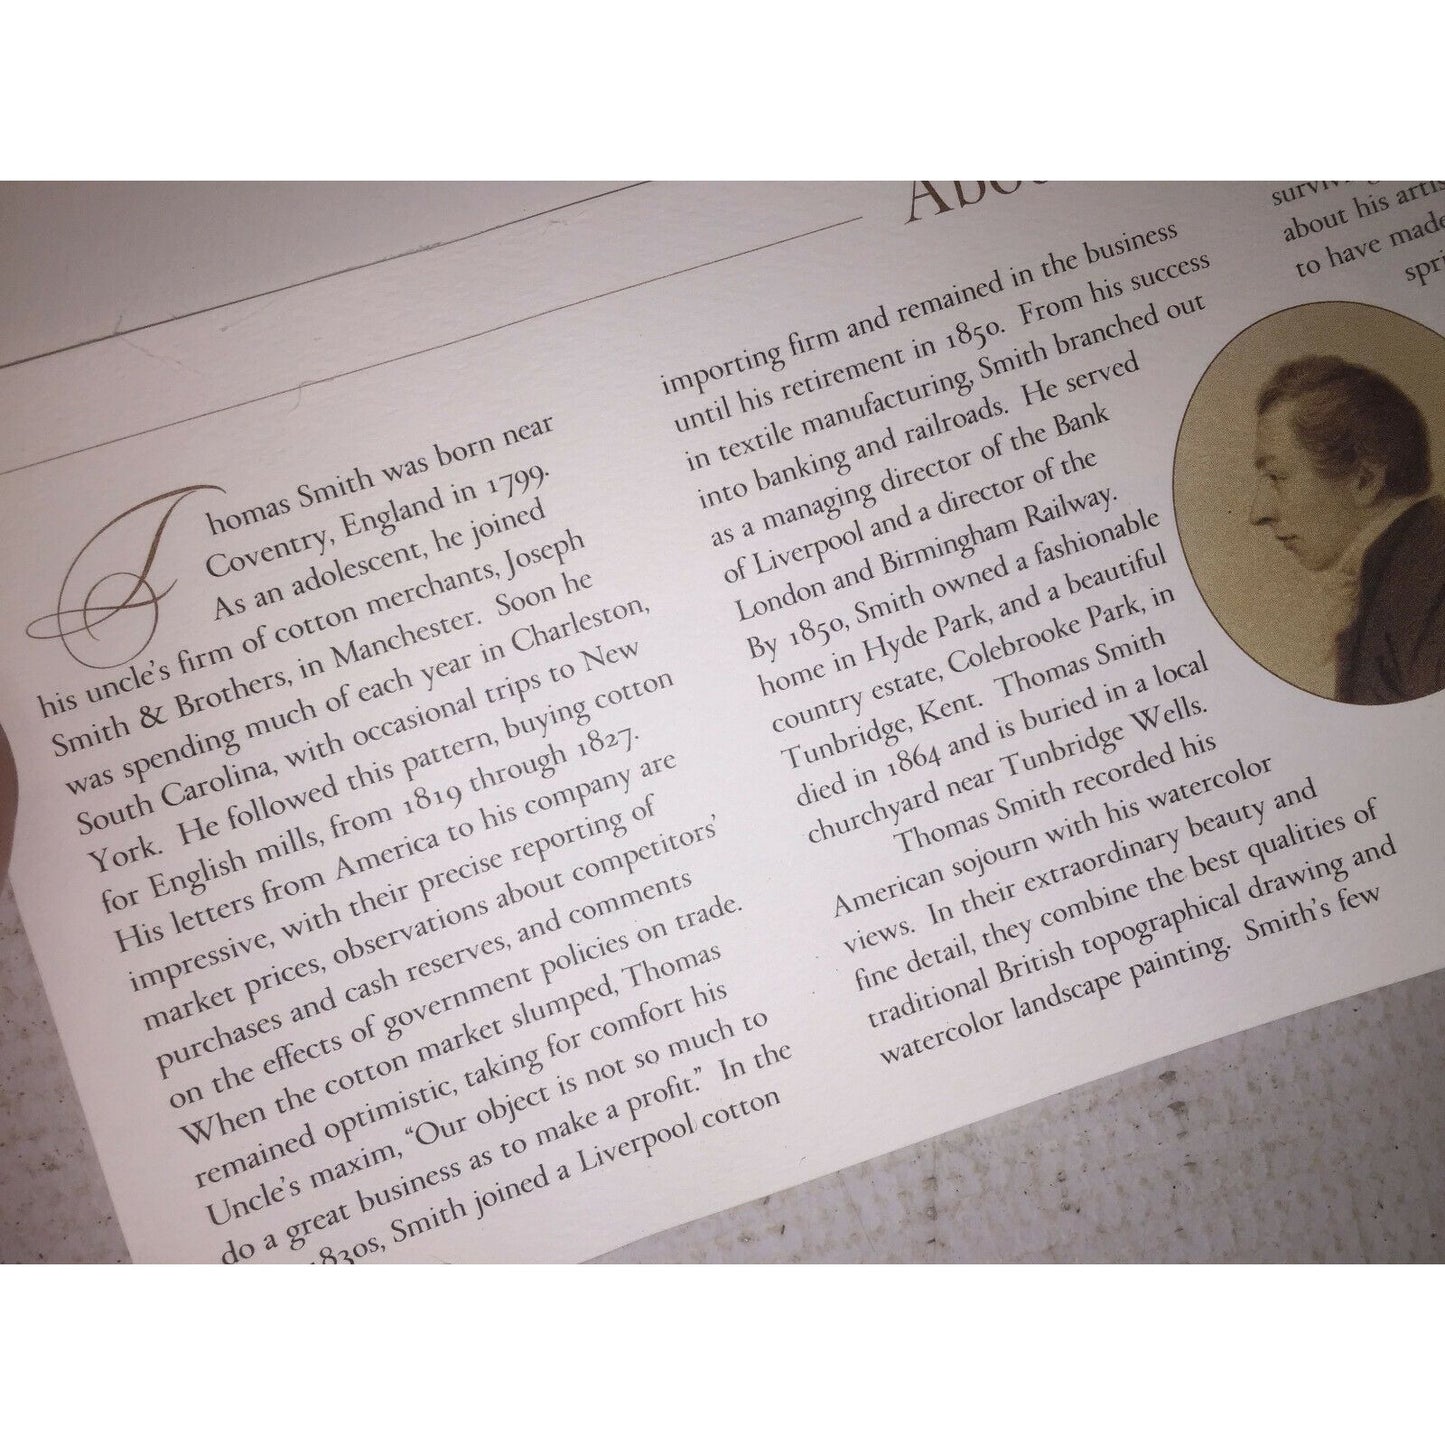 Thomas Smith was born near
Coventry, England in 1799.
As an adolescent, he joined
his uncle's firm of cotton merchants, Joseph
Smith & Brothers, in Manchester. Soon he
was spending much of each year in Charleston,
South Carolina, with occasional trips to New
York. He followed this pattern, buying cotton
for English mills, from 1819 through 1827.
His letters from America to his company are
impressive, with their precise reporting of
market prices, observations about competitors'
purchases and cash reserves, and comments
on the effects of government policies on trade.
When the cotton market slumped, Thomas
remained optimistic, taking for comfort his
Uncle's maxim, “Our object is not so much to
do a great business as to make a profit.” In the
1830s, Smith joined a Liverpool cotton
importing firm and remained in the business
until his retirement in 1850. From his success
in textile manufacturing, Smith branched out
into banking and railroads. He served
as a managing director of the Bank
of Liverpool and a director of the
London and Birmingham Railway.
By 1850, Smith owned a fashionable
home in Hyde Park, and a beautiful
country estate, Colebrooke Park, in
Tunbridge, Kent. Thomas Smith
died in 1864 and is buried in a local
churchyard near Tunbridge Wells.
Thomas Smith recorded his
American sojourn with his watercolor
views. In their extraordinary beauty and
fine detail, they combine the best qualities of
traditional British topographical drawing and
watercolor landscape painting. Smith's few
about his
to have made